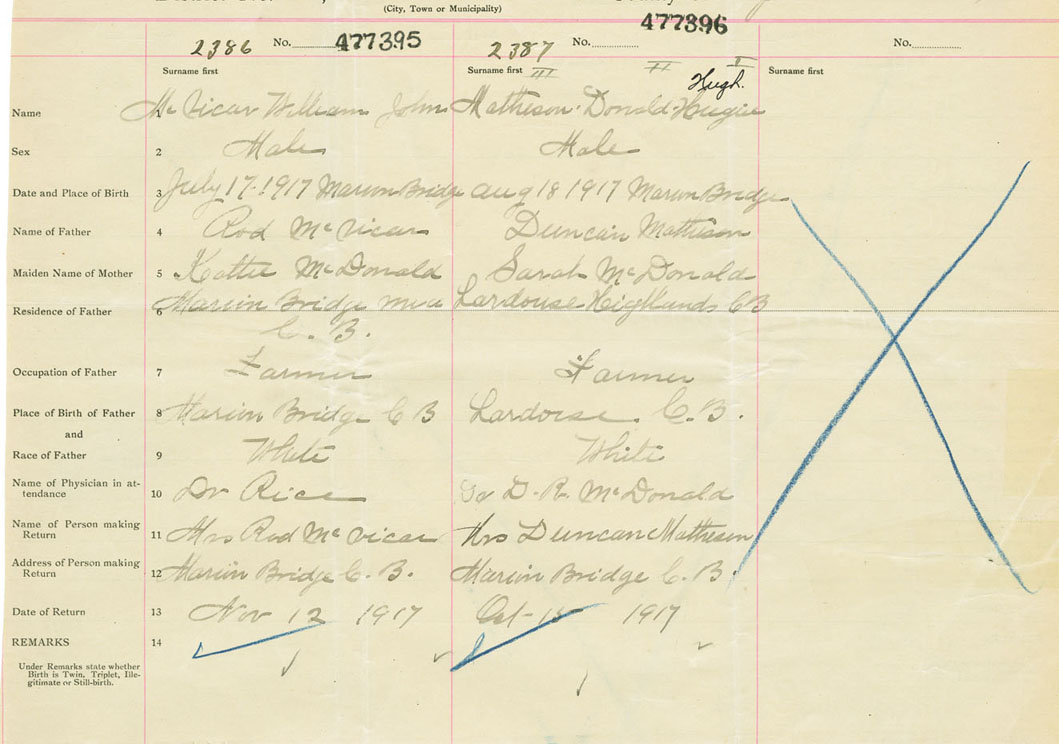 (City, Town or Municipality)
2386 No. 477395 2387 No. 477396 No.
Surname first Surname first III II I Surname first
Hugh.
Name 1 McVicar William John Matheson Donald Hugie
Sex 2 Male Male
Date and Place of Birth 3 July 17 1917 Marion Bridge Aug 18 1917 Marion Bridge
Name of Father 4 Rod McVicar Duncan Matheson
Maiden Name of Mother 5 Kattie McDonald Sarah McDonald
Residence of Father 6 Marion Bridge Mira Lardoise Highlands CB
C. B.
Occupation of Father 7 Farmer Farmer
Place of Birth of Father 8 Marion Bridge C B Lardoise C.B.
and
Race of Father 9 White White
Name of Physician in at-
tendance 10 Dr Rice Dr D. R. McDonald
Name of Person making
Return 11 Mrs Rod McVicar Mrs Duncan Matheson
Address of Person making
Return 12 Marion Bridge C. B. Marion Bridge C. B.
Date of Return 13 Nov 12 1917 Oct 1917
REMARKS 14
Under Remarks state whether
Birth is Twin, Triplet, Ille-
gitimate or Still-birth.